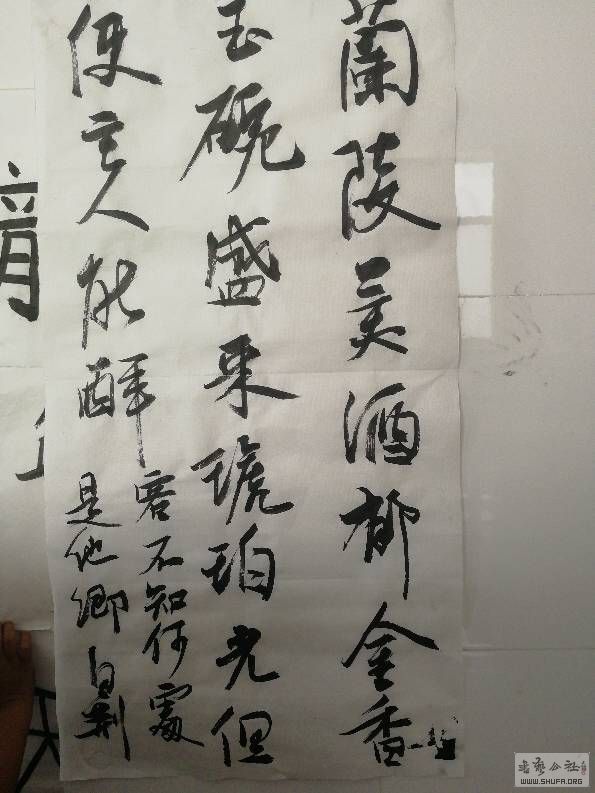 蘭陵美酒郁金香
玉碗盛来琥珀光但
使主人能醉客不知何處
是他鄉
書法公社
WWW.SHUFA.ORG